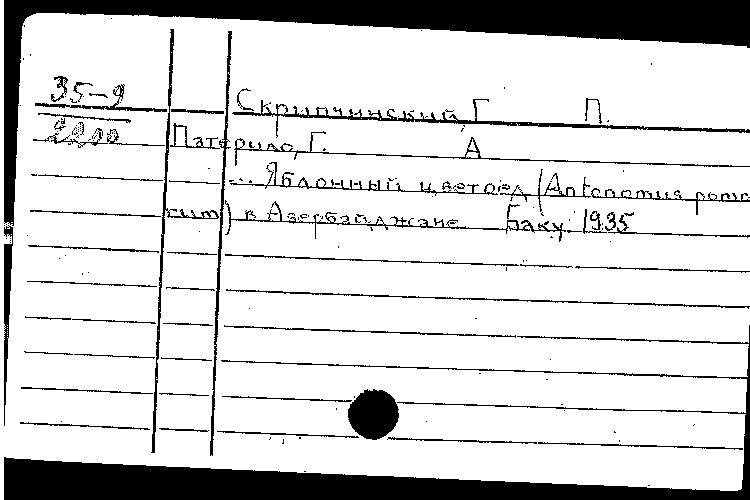 35-9
2200
Скрипчинский, Г П.
Патерило, Г. А
... Яблонный цветоед (Antonomus pomo
rum) в Азербайджане Баку. 1935